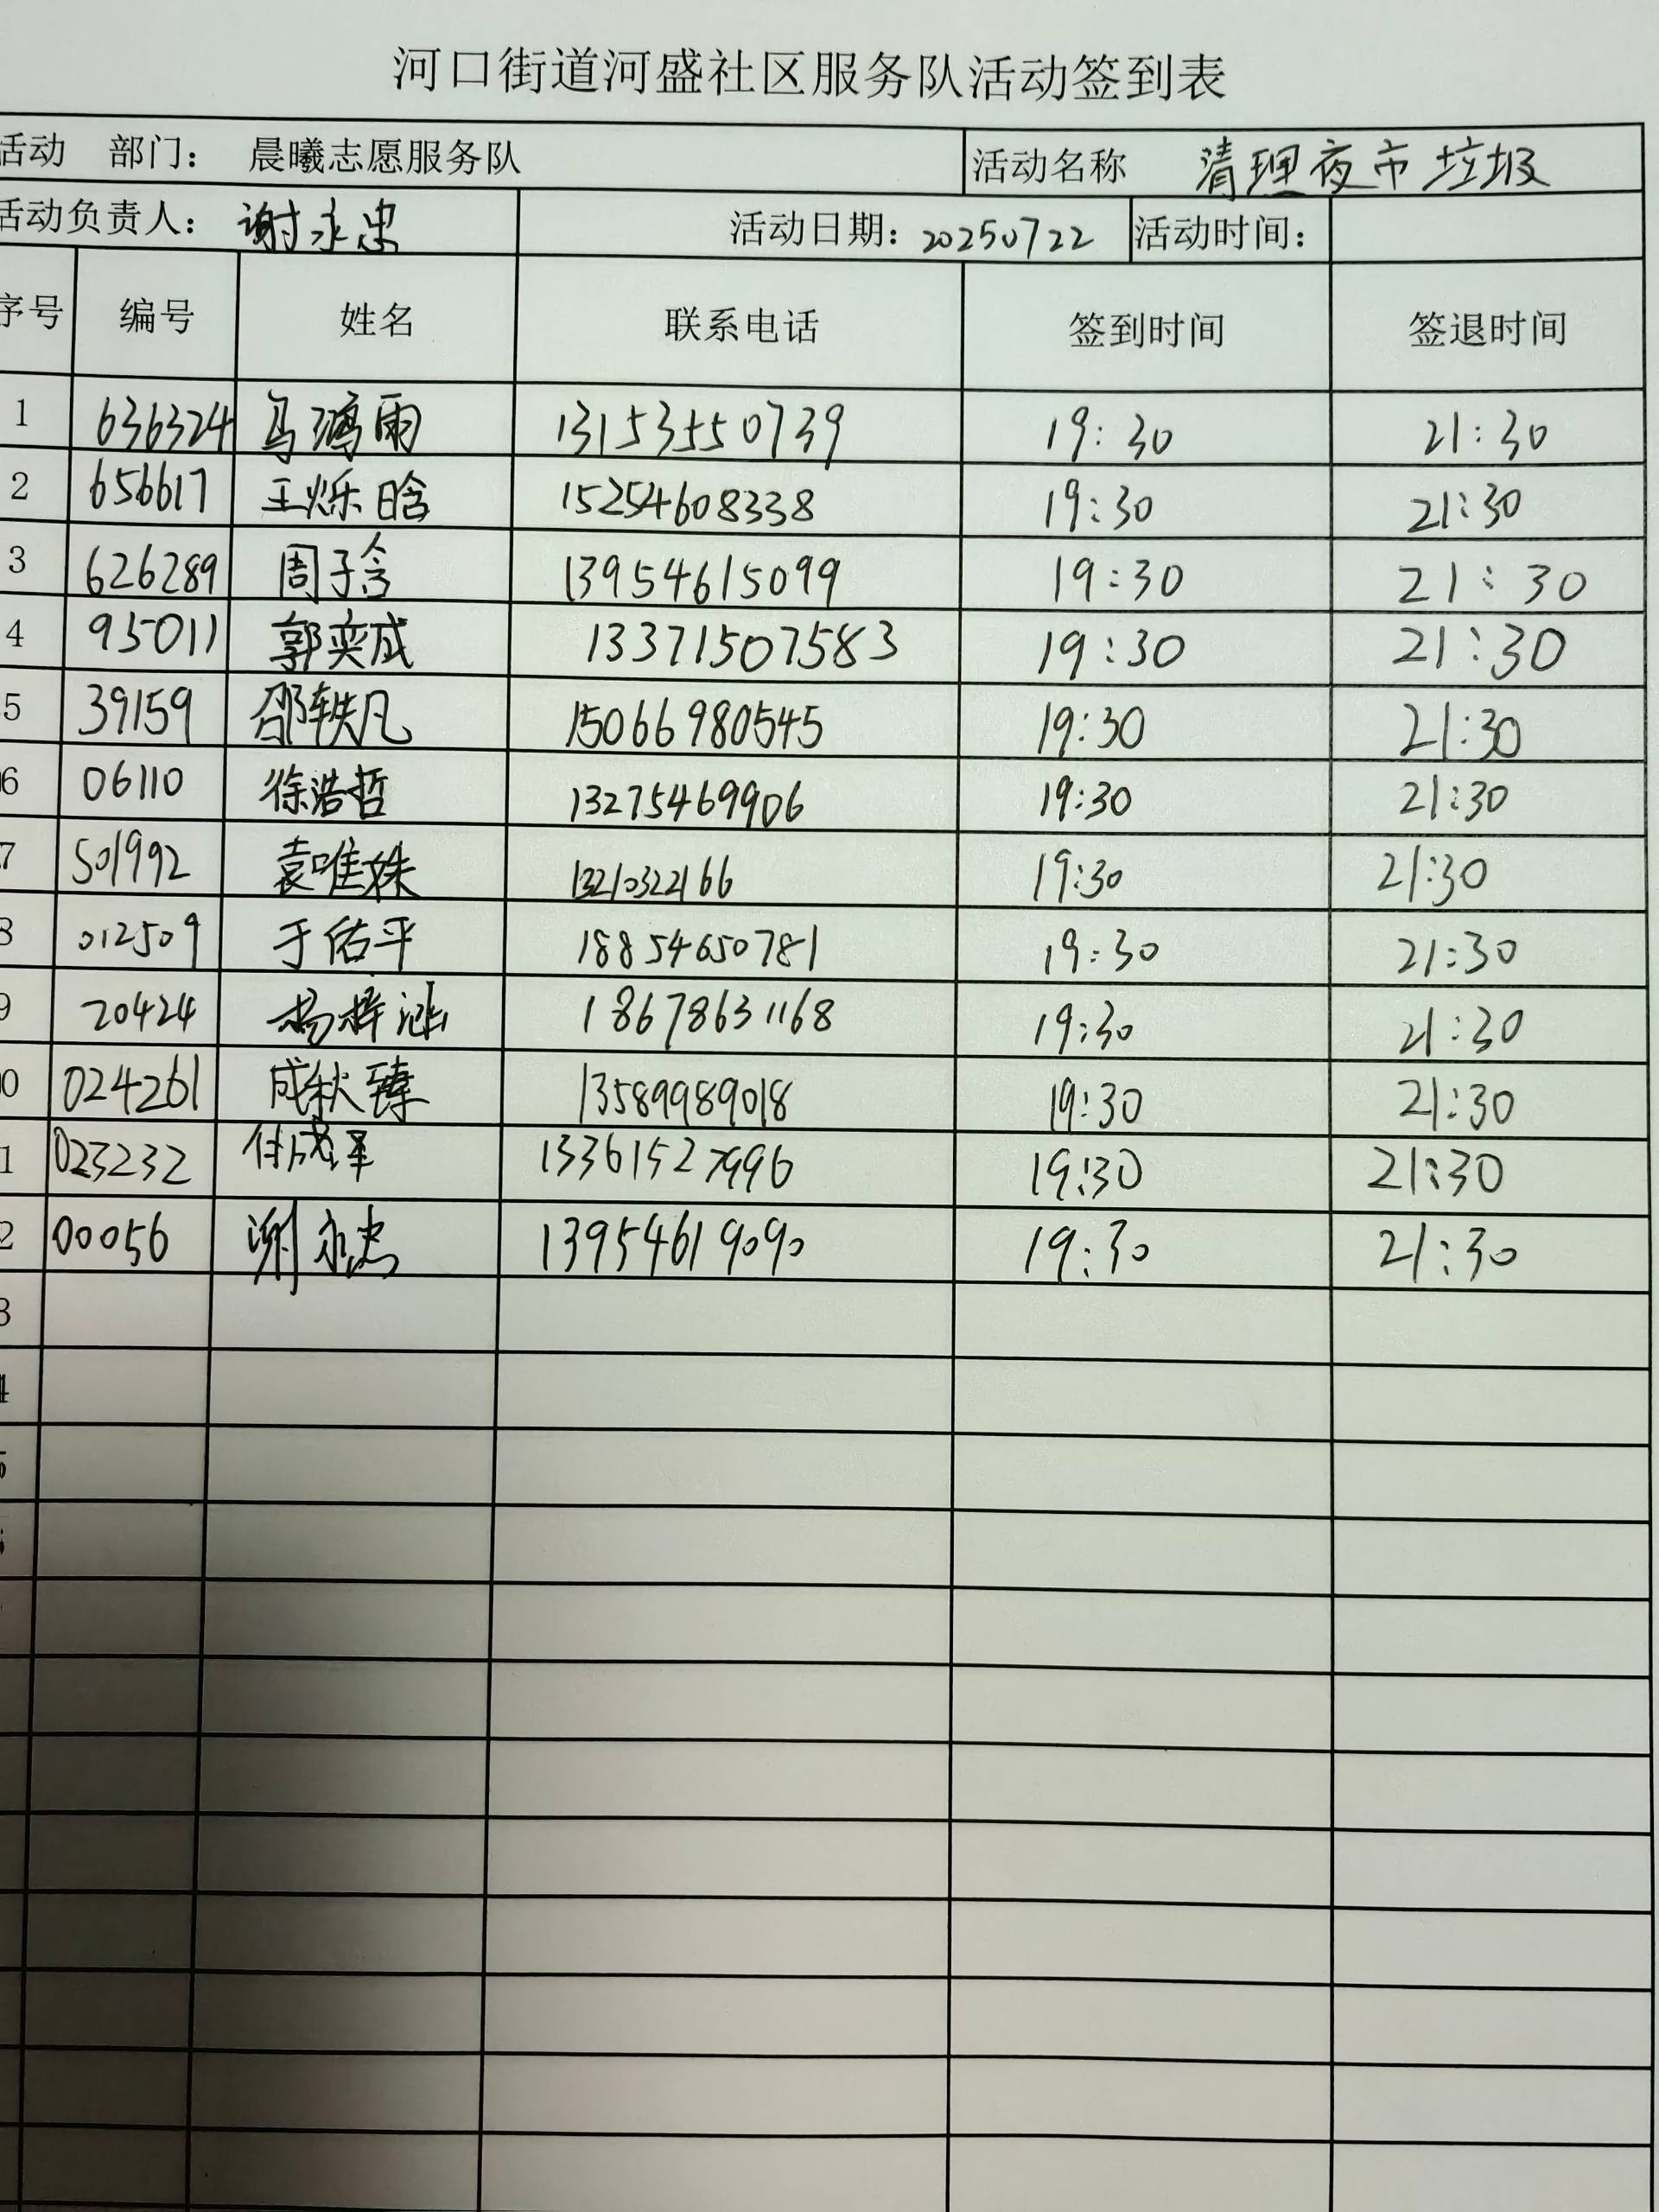 河口街道河盛社区服务队活动签到表
活动 部门： 晨曦志愿服务队 活动名称 清理夜市垃圾
活动负责人： 谢永忠 活动日期：20250722 活动时间：
序号 编号 姓名 联系电话 签到时间 签退时间
1 636324 马鸿雨 13153550739 19:30 21:30
2 656617 王烁晗 15254608338 19:30 21:30
3 626289 周子含 13954615099 19:30 21:30
4 95011 郭奕成 13371507583 19:30 21:30
5 39159 邵轶凡 15066980545 19:30 21:30
6 06110 徐浩哲 13275469906 19:30 21:30
7 501992 袁唯姝 13210322166 19:30 21:30
8 012509 于佑平 18854650781 19:30 21:30
9 20424 杨梓涵 18678631168 19:30 21:30
0 024261 成秋臻 13589989018 19:30 21:30
1 023232 付成泽 13361527996 19:30 21:30
2 00056 谢永忠 13954619090 19:30 21:30
3
4
5
6